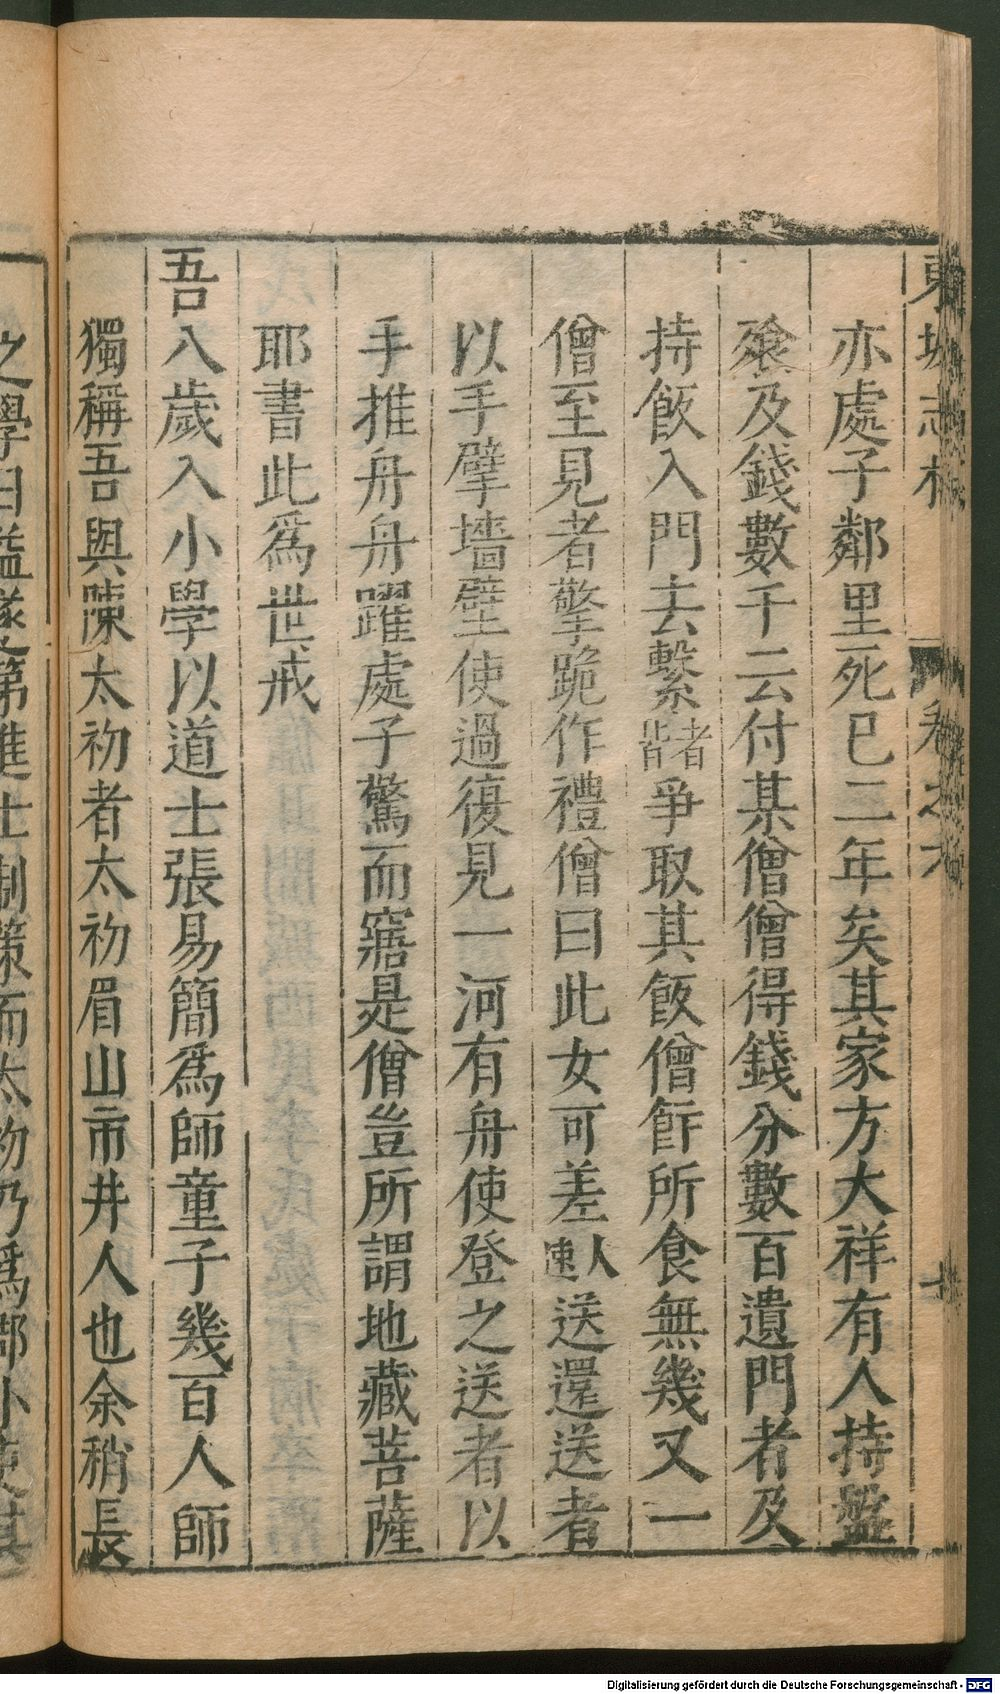 東坡志林 卷之六
亦處子鄰里死已二年矣其家方大祥有人持盤
飱及錢數千云付某僧僧得錢分數百遺門者及
持飯入門去繫者皆爭取其飯僧飵所食無幾又一
僧至見者擎跪作禮僧曰此女可差人速送還送者
以手擘墻壁使過復見一河有舟使登之送者以
手推舟舟躍處子驚而寤是僧豈所謂地藏菩薩
耶書此爲世戒
吾八歲入小學以道士張易簡爲師童子幾百人師
獨稱吾與陳太初者太初眉山市井人也余稍長
之學日益遂第進士制策而太初乃爲郡小吏其
Digitalisierung gefördert durch die Deutsche Forschungsgemeinschaft - DFG